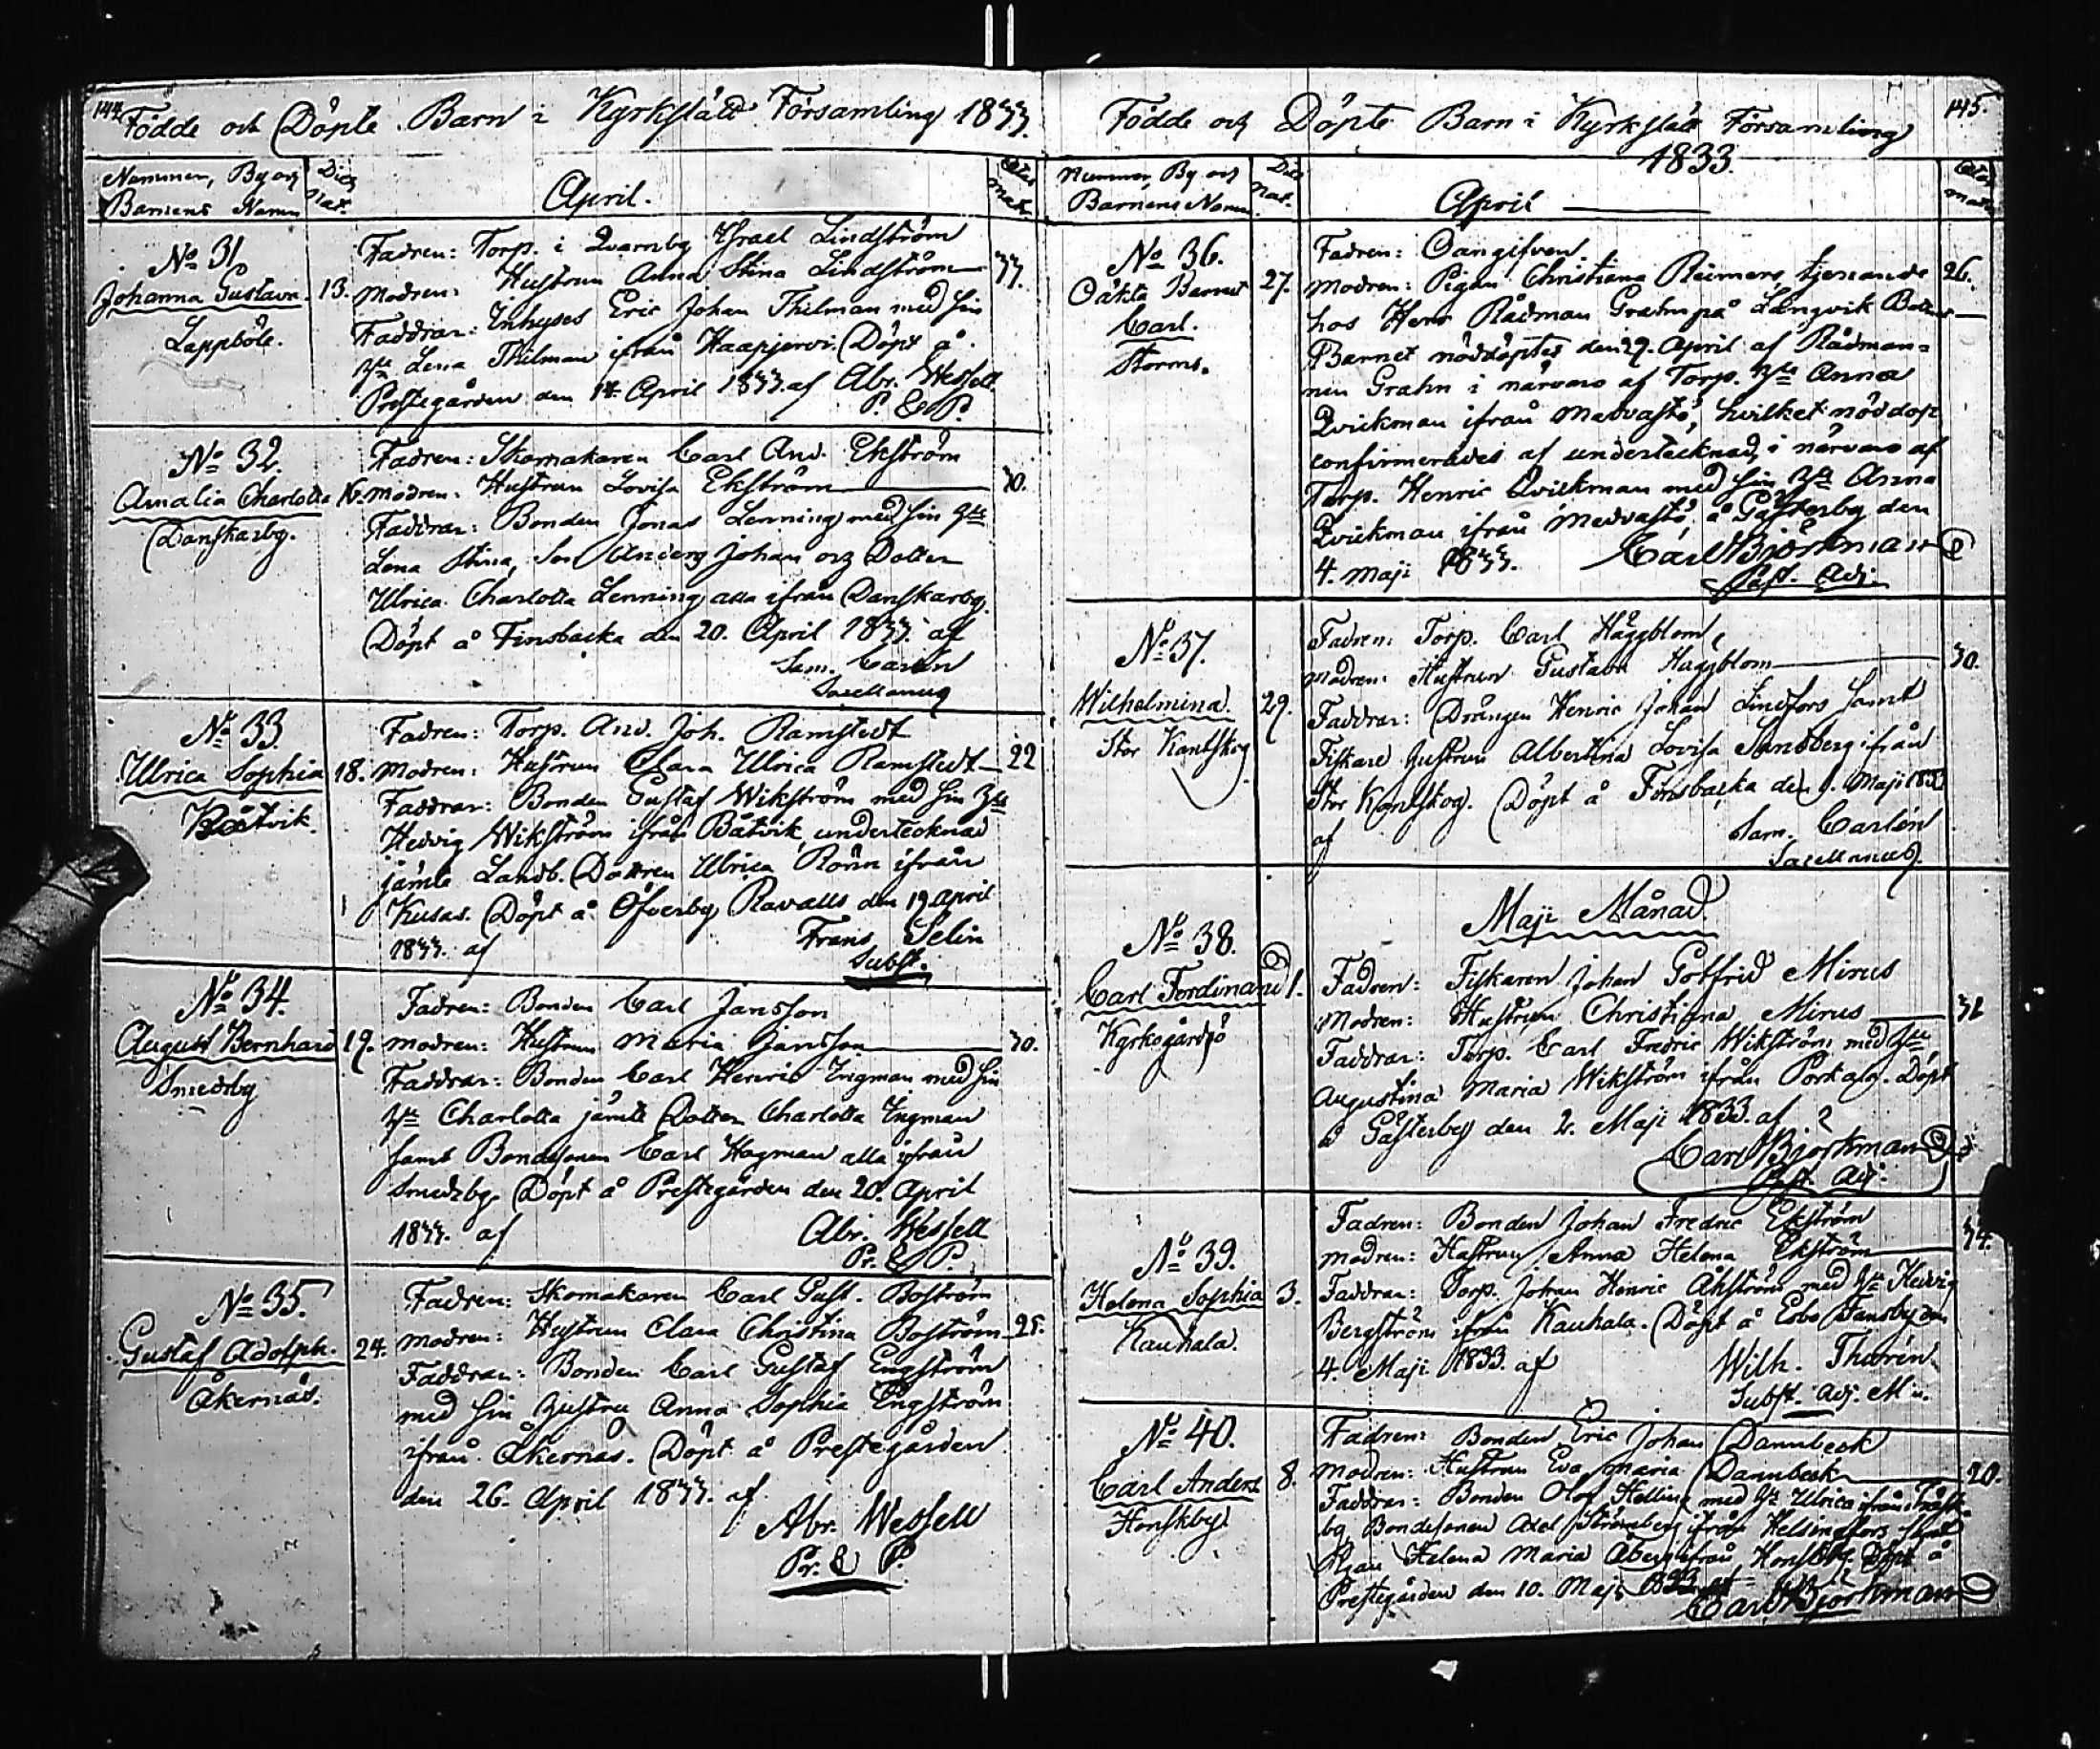 144.
Födde och Döpte Barn i Kyrkslätt Församling 1833.
Nummer, By och Barnens Namn
Dies nat.
April.
Ætas matr.
No 31.
Johanna Gustava.
Lappböle.
13.
Fadren: Torp. i Qvarnby Israel Lindström
Modren: Hustrun Anna Stina Lindström
33.
Faddrar: Inhyses Eric Johan Thilman med sin
Hu Lena Thilman ifrån Haapjervi. Döpt å
Prestegården den 14 April 1833. af Abr. Wessell
P. & P.
No 32.
Amalia Charlotta
Danskarby.
16.
Fadren: Skomakaren Carl And. Ekström
Modren: Hustrun Lovisa Ekström
30.
Faddrar: Bonden Jonas Lenning med sin Hu
Lena Stina, Son Anders Johan och Dotter
Ulrica Charlotta Lenning alla ifrån Danskarby.
Döpt å Finsbacka den 20. April 1833. af
Sam. Carlén
Sacellanus
No 33.
Ulrica Sophia
Båtvik.
18.
Fadren: Torp. And. Joh. Ramstedt
Modren: Hustrun Clara Ulrica Ramstedt
22
Faddrar: Bonden Gustaf Wikström med sin Hu
Hedvig Wikström ifrån Båtvik, undertecknad
jämte Landb. Dottren Ulrica Rönn ifrån
Kusas. Döpt å Öfverby Ravalls den 19 April
1833. af
Frans Selin
Subst.
No 34.
August Bernhard
Smedsby
19.
Fadren: Bonden Carl Jansson
Modren: Hustrun Maria Jansson
30.
Faddrar: Bonden Carl Henric Ingman med sin
Hu Charlotta jämte Dotter Charlotta Ingman
samt Bondesonen Carl Hagman alla ifrån
Smedsby. Döpt å Prestegården den 20. April
1833. af
Abr. Wessell
Pr. & P.
No 35.
Gustaf Adolph.
Åkernäs.
24.
Fadren: Skomakaren Carl Gust. Boström
Modren: Hustrun Clara Christina Boström
25.
Faddrar: Bonden Carl Gustaf Engström
med sin Hustru Anna Sophia Engström
ifrån Åkernäs. Döpt å Prestegården
den 26. April 1833. af
Abr. Wessell
Pr. & P.
145.
Födde och Döpte Barn i Kyrkslätt Församling
1833.
Nummer, By och Barnens Namn
Dies nat.
April
Ætas matr.
No 36.
Oäkta Barnet
Carl.
Storms.
27.
Fadren: Oangifven.
Modren: Pigan Christiana Reimers, tjenande
26.
hos Herr Rådman Grahn på Långvik
Barnet nöddöptes den 29. April af Rådman-
nen Grahn i närvaro af Torp. Hu Anna
Qvickman ifrån Medvastö, hvilket nöddop
confirmerades af undertecknad, i närvaro af
Torp. Henric Qvickman med sin Hu Anna
Qvickman ifrån Medvastö, å Gästerby den
4. Maji 1833.
Carl Björkman
Past. Adj.
No 37.
Wilhelmina.
Stor Kantskog
29.
Fadren: Torp. Carl Häggblom,
Modren: Hustrun Gustava Häggblom
30.
Faddrar: Drängen Henric Johan Lindfors samt
Fiskare hustrun Albertina Lovisa Sandberg ifrån
Stor Kantskog. Döpt å Finsbacka den 9. Maji 1833
af
Sam. Carlén
Sacellanus.
Maji Månad.
No 38.
Carl Ferdinand
Kyrkogårdsö
1.
Fadren: Fiskaren Johan Gotfrid Mirus
Modren: Hustrun Christiana Mirus
Faddrar: Torp. Carl Fredric Wikström med Hu
Augustina Maria Wikström ifrån Porkala. Döpt
å Gästerby den 2. Maji 1833. af
Carl Björkman
Past. Adj.
No 39.
Helena Sophia
Kauhala.
3.
Fadren: Bonden Johan Fredric Ekström
Modren: Hustrun Anna Helena Ekström
34.
Faddrar: Torp. Johan Henric Åhström med Hu Hedvig
Bergström ifrån Kauhala. Döpt å Esbo Dansby den
4. Maji 1833. af
Wilh. Thurén
Subst. adj. M.
No 40.
Carl Anders
Honskby.
8.
Fadren: Bonden Eric Johan Dannbeck
Modren: Hustrun Eva Maria Dannbeck
20.
Faddrar: Bonden Olof Helling med Hu Ulrica ifrån
by, Bondesonen Axel Strömberg ifrån Helsingfors samt
Pigan Helena Maria Åberg ifrån Honskby. Döpt å
Prestegården den 10. Maji 1833 af
Carl Björkman